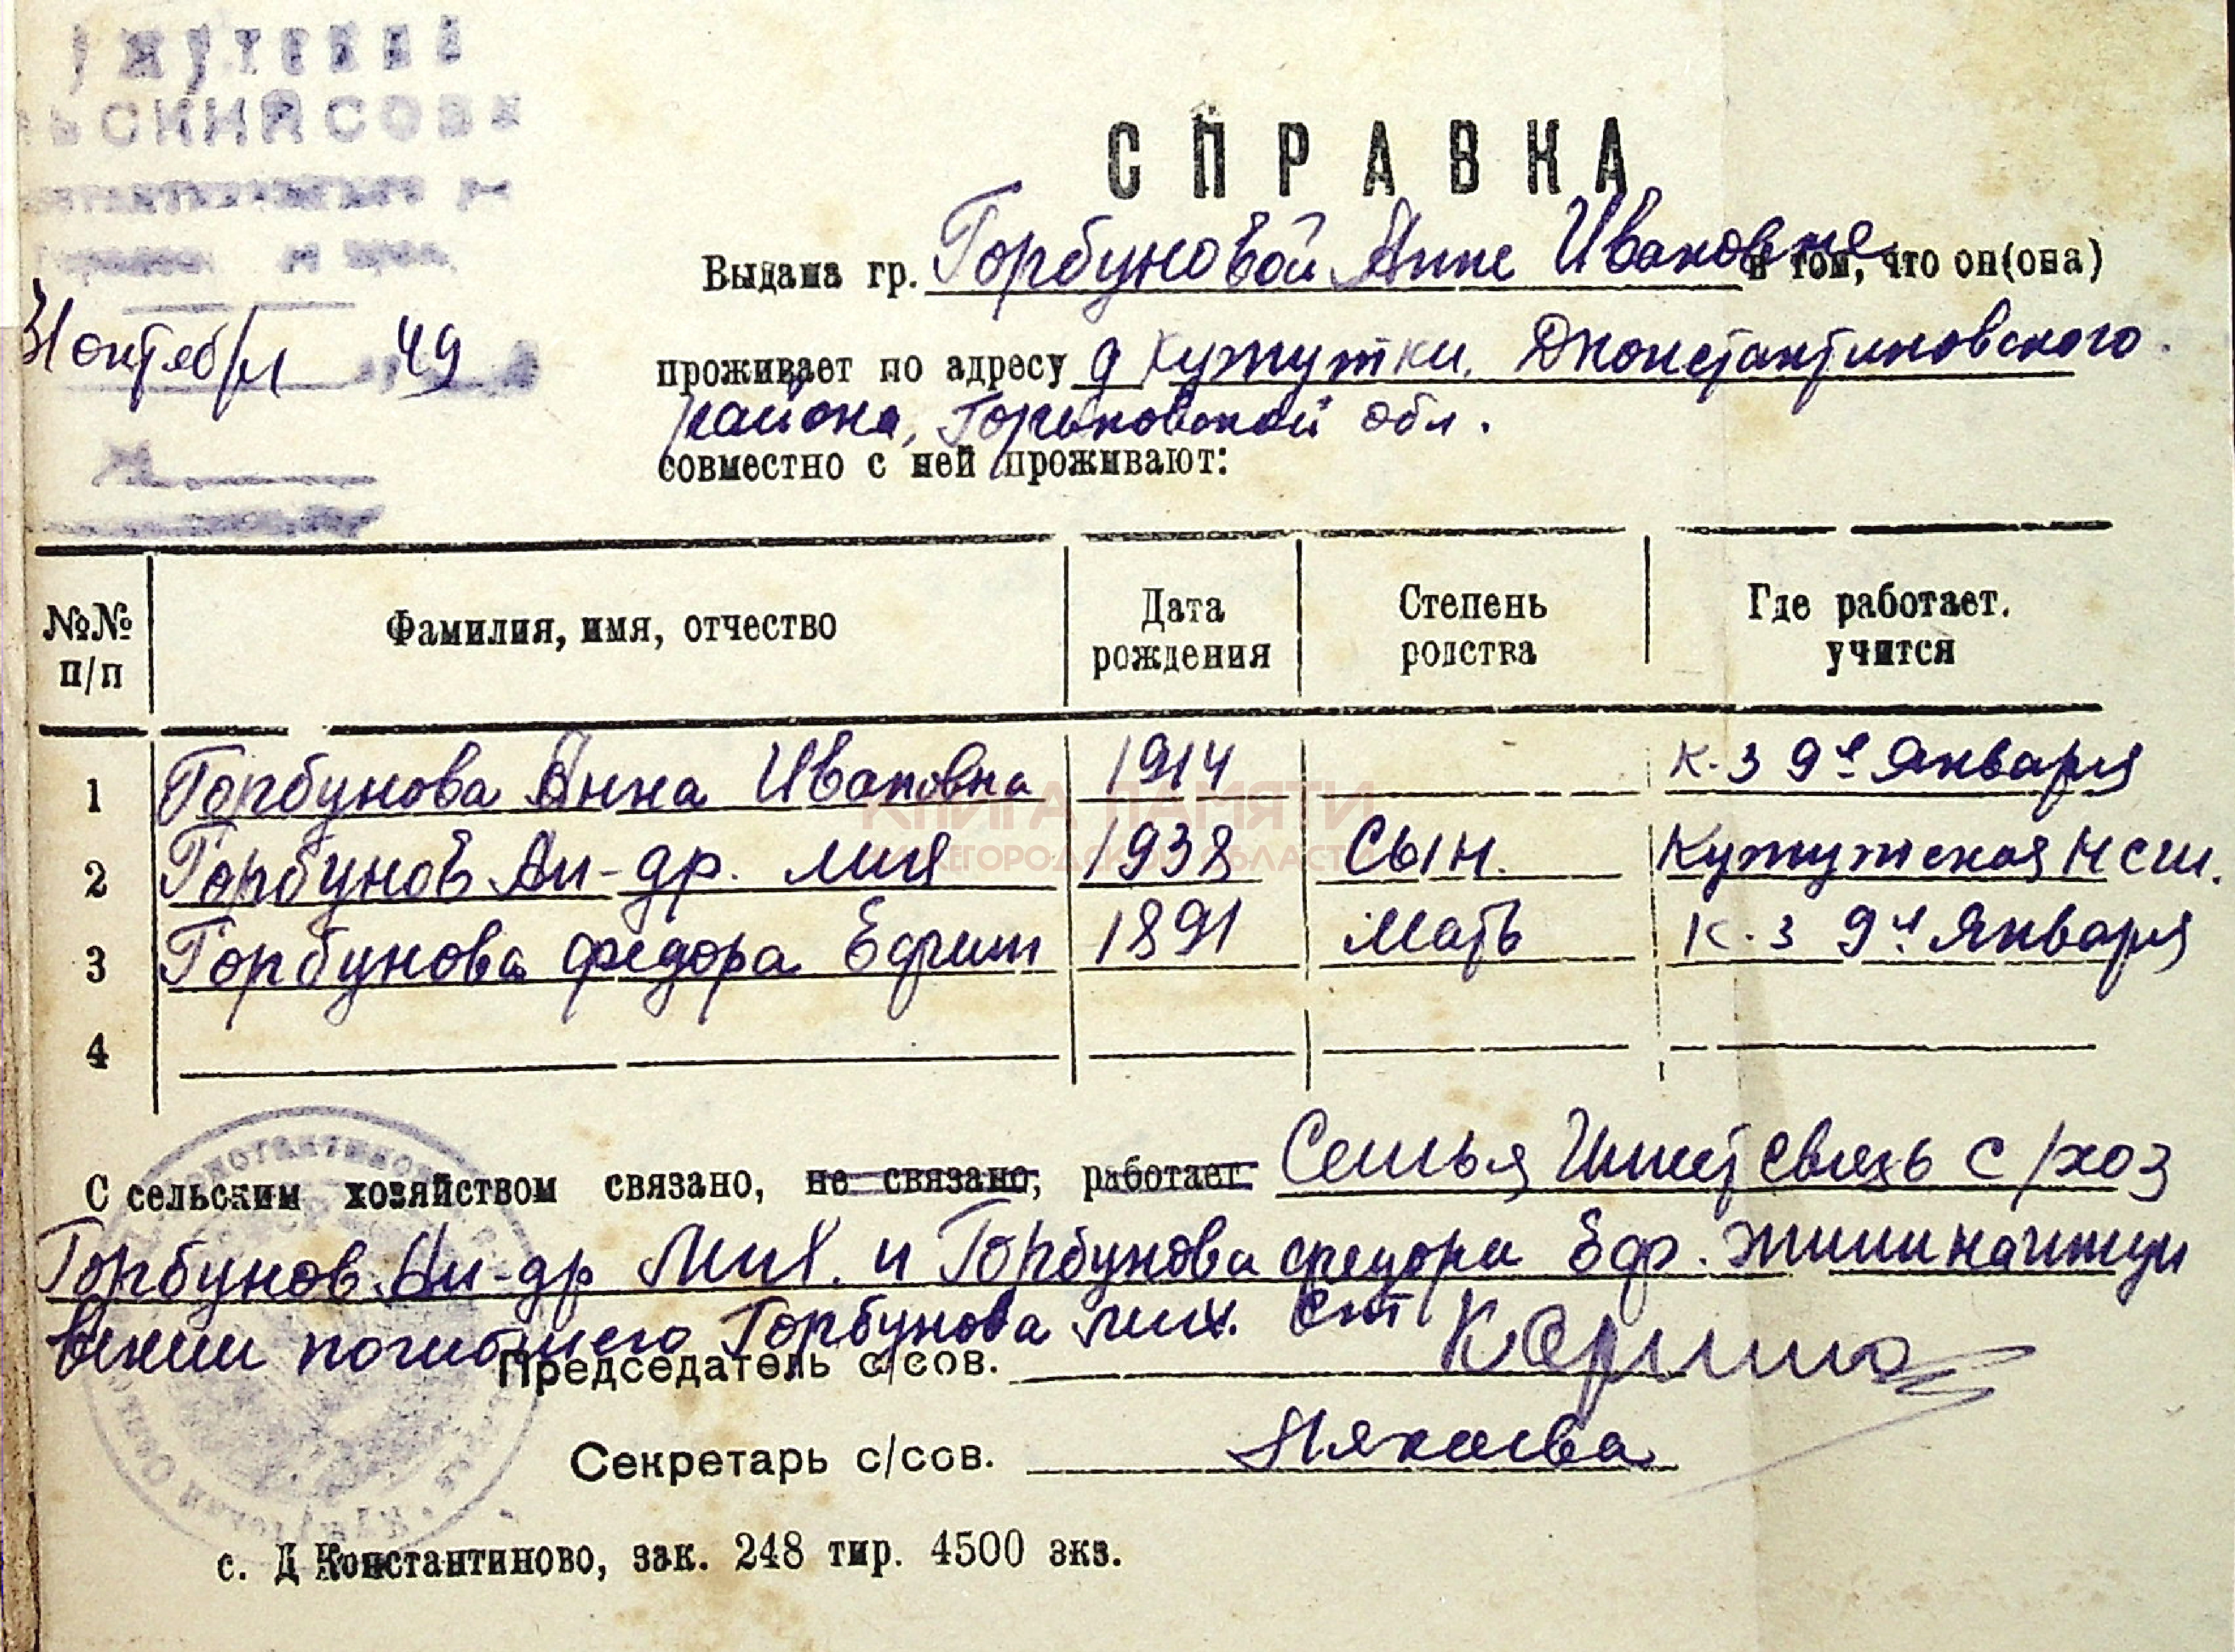 СПРАВКА
Выдана гр. Горбуновой Анне Ивановне в том, что он(она)
31 октября 49
проживает по адресу д Кужутки, Дконстантиновского
района, Горьковской обл.
совместно с ней проживают:
№№ п/п Фамилия, имя, отчество Дата рождения Степень родства Где работает, учится
1 Горбунова Анна Ивановна 1914 к-з 9е Января
2 Горбунов Ал-др. Мих 1938 Сын. Кужутская НСШ.
3 Горбунова Федора Ефим 1891 Мать к-з 9е Января
4
С сельским хозяйством связано, не связано, работает Семья Имеет связь с/хоз
Горбунов Ал-др Мих. и Горбунова Федора Еф. жили на иждивении погибшего Горбунова Мих.
Председатель с/сов.
Секретарь с/сов.
с. Д Константиново, зак. 248 тир. 4500 экз.
КНИГА ПАМЯТИ
НИЖЕГОРОДСКОЙ ОБЛАСТИ